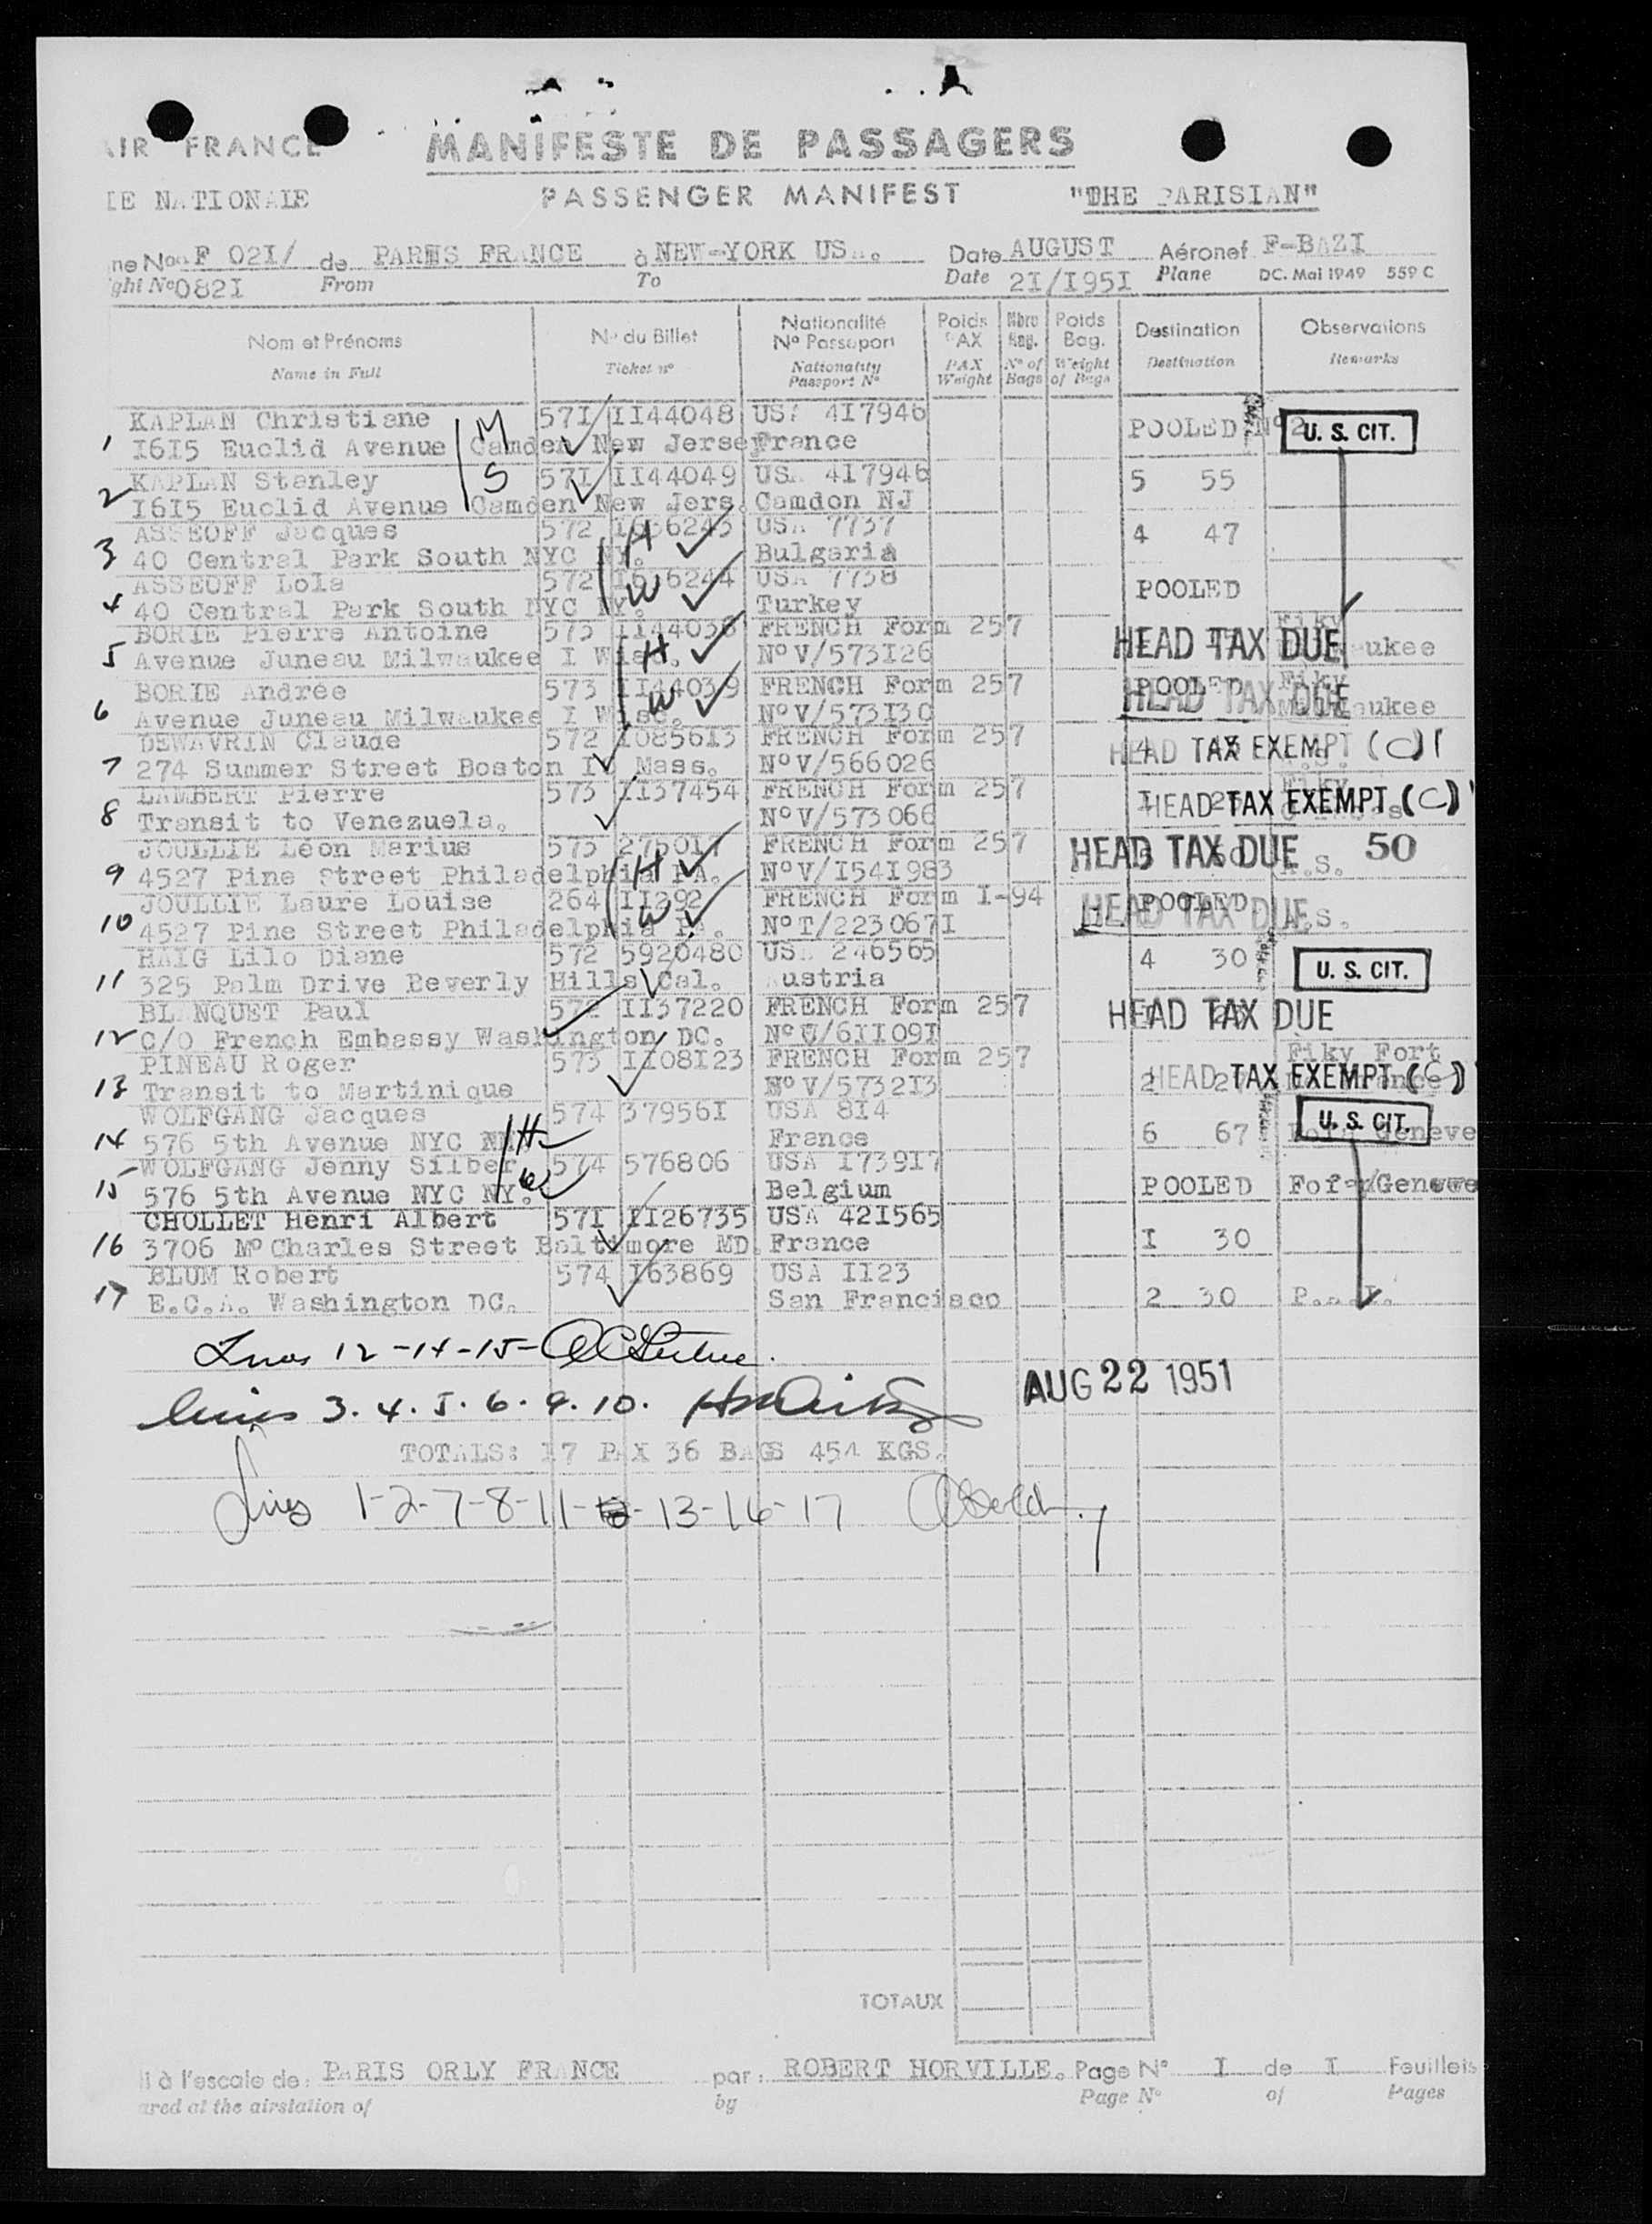 AIR FRANCE
MANIFESTE DE PASSAGERS
NATIONALE
PASSENGER MANIFEST
"THE PARISIAN"
ne No F 021/ de PARIS FRANCE à NEW-YORK US Date AUGUST Aéronef F-BAZI
ght No 082I From To Date 2I/I95I Plane DC. Mai 1949 559 C
Nom et Prénoms No du Billet Nationalité Poids Nbre Poids Destination Observations
No Passeport PAX Bag. Bag.
Name in Full Ticket no Nationality PAX No of Weight Destination Remarks
Passport No Weight Bags of Bags
KAPLAN Christiane M 57I II44048 USA 4I7946 POOLED No2 U. S. CIT.
1 I6I5 Euclid Avenue Camden New Jersey France
KAPLAN Stanley S 57I II44049 USA 4I7946 5 55
2 I6I5 Euclid Avenue Camden New Jers. Camdon NJ
ASSEOFF Jacques 572 I636243 USA 7737 4 47
3 40 Central Park South NYC NY. H Bulgaria
ASSEOFF Lola 572 I636244 USA 7738 POOLED
4 40 Central Park South NYC NY. W Turkey
BORIE Pierre Antoine 573 II44038 FRENCH Form 257 HEAD TAX DUE Fiky
5 Avenue Juneau Milwaukee I Wisc. H No V/573I26 ukee
BORIE Andrée 573 II44039 FRENCH Form 257 POOLED Fiky
6 Avenue Juneau Milwaukee I Wisc. W No V/573I30 HEAD TAX DUE ukee
DEWAVRIN Claude 572 I0856I3 FRENCH Form 257 HEAD TAX EXEMPT (C)
7 274 Summer Street Boston I0 Mass. No V/566026
LAMBERT Pierre 573 II37454 FRENCH Form 257 HEAD TAX EXEMPT (C)
8 Transit to Venezuela. No V/573066
JOULLIE Léon Marius 573 275017 FRENCH Form 257 HEAD TAX DUE 50
9 4527 Pine Street Philadelphia PA. H No V/I54I983
JOULLIE Laure Louise 264 II292 FRENCH Form I-94 POOLED HEAD TAX DUE
10 4527 Pine Street Philadelphia PA. W No T/223067I
HAIG Lilo Diane 572 5920480 USA 246565 4 30 U. S. CIT.
11 325 Palm Drive Beverly Hills Cal. Austria
BLANQUET Paul 572 II37220 FRENCH Form 257 HEAD TAX DUE
12 C/O French Embassy Washington DC. No V/6II09I
PINEAU Roger 573 II08I23 FRENCH Form 257 Fiky Fort
13 Transit to Martinique No V/5732I3 2 27 HEAD TAX EXEMPT (C)
WOLFGANG Jacques 574 37956I USA 8I4 U. S. CIT.
14 576 5th Avenue NYC NY. H France 6 67 Geneve
WOLFGANG Jenny Silber 574 576806 USA I739I7
15 576 5th Avenue NYC NY. W Belgium POOLED Geneve
CHOLLET Henri Albert 57I II26735 USA 42I565
16 3706 Mc Charles Street Baltimore MD. France I 30
BLUM Robert 574 I63869 USA II23
17 E.C.A. Washington DC. San Francisco 2 30
Lines 12-14-15-
AUG 22 1951
lines 3. 4. 5. 6. 9. 10.
TOTALS: I7 PAX 36 BAGS 454 KGS.
Lines 1-2-7-8-11- -13-16-17
TOTAUX
à l'escale de: PARIS ORLY FRANCE par: ROBERT HORVILLE. Page No I de I Feuillets
ared at the airstation of by Page No of Pages